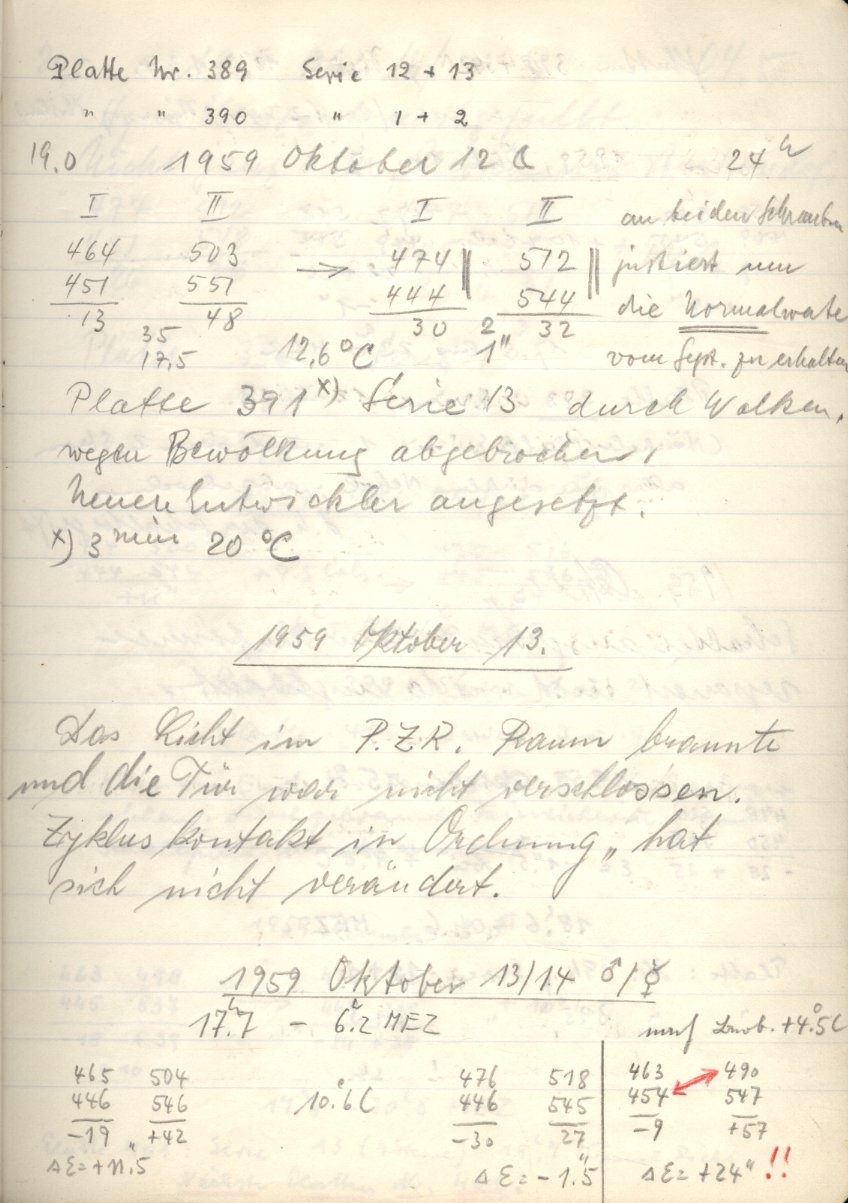 Platte Nr. 389 Serie 12 + 13
" " 390 " 1 + 2
19.0 1959 Oktober 12 ☾ 24ʰ
I II I II an beiden Schrauben
464 503 → 474 || 512 || justiert um
451 551 444 544 die Normalwerte
13 48 30 2 32
35
17,5 12,6°C 1" vom Sept. zu erhalten
Platte 391 x) Serie 13 durch Wolken.
wegen Bewölkung abgebrochen,
Neuen Entwickler angesetzt.
x) 3 min 20 °C
1959 Oktober 13.
Das Licht im P.Z.R. Raum brannte
und die Tür war nicht verschlossen.
Zykluskontakt in Ordnung „ hat
sich nicht verändert.
1959 Oktober 13/14 ♂/☿
17ʰ.7 – 6ʰ.2 MEZ nach Beob. +4°.5C
465 504 476 518 463 490
446 546 10°.6C 446 545 454 547
-19 +42 -30 27 -9 +57
ΔE=+11".5 ΔE=-1".5 ΔE=+24" !!